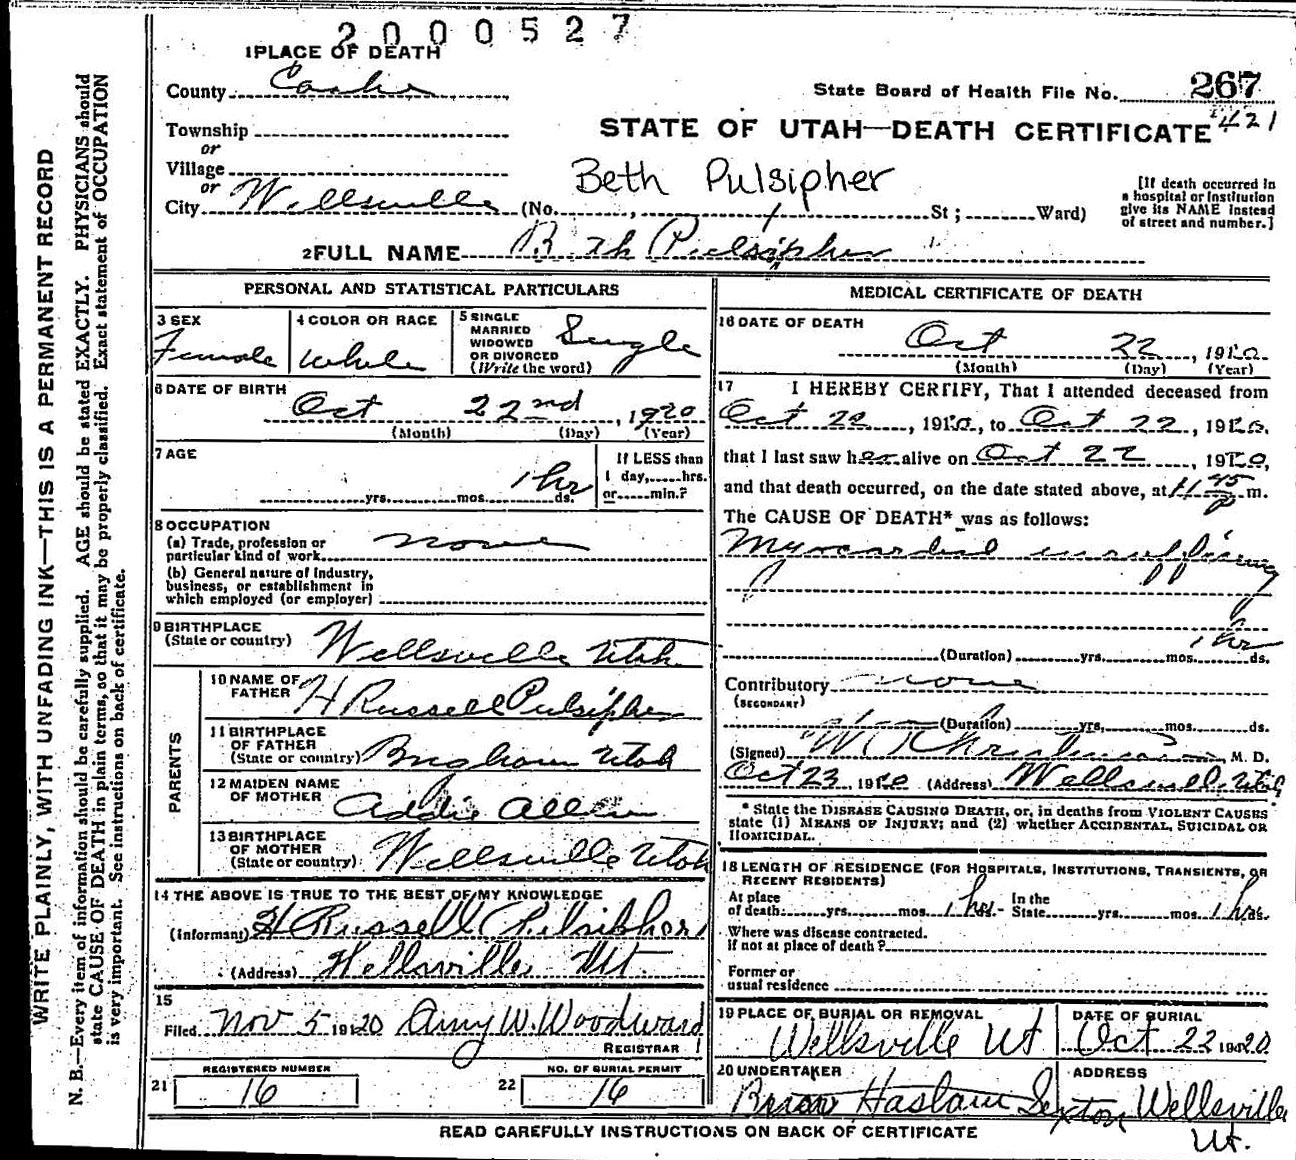 2000527
1 PLACE OF DEATH
County Cache
State Board of Health File No. 267
421
Township
or
Village
or
City Wellsville (No. , St ; Ward)
STATE OF UTAH—DEATH CERTIFICATE
Beth Pulsipher
[If death occurred in a hospital or institution give its NAME instead of street and number.]
2 FULL NAME Beth Pulsipher
PERSONAL AND STATISTICAL PARTICULARS
3 SEX
Female
4 COLOR OR RACE
White
5 SINGLE
MARRIED
WIDOWED
OR DIVORCED
(Write the word)
Single
6 DATE OF BIRTH
Oct 22nd, 1920
(Month) (Day) (Year)
7 AGE
1 hr
yrs. mos. ds.
If LESS than
1 day, hrs.
or min.?
8 OCCUPATION
(a) Trade, profession or
particular kind of work None
(b) General nature of Industry,
business, or establishment in
which employed (or employer)
9 BIRTHPLACE
(State or country) Wellsville Utah
PARENTS
10 NAME OF
FATHER H Russell Pulsipher
11 BIRTHPLACE
OF FATHER
(State or country) Brigham Utah
12 MAIDEN NAME
OF MOTHER Addie Allen
13 BIRTHPLACE
OF MOTHER
(State or country) Wellsville Utah
14 THE ABOVE IS TRUE TO THE BEST OF MY KNOWLEDGE
(Informant) H Russell Pulsipher
(Address) Wellsville Ut.
15
Filed Nov 5 1920 Amy W. Woodward
REGISTRAR
REGISTERED NUMBER
21 16
NO. OF BURIAL PERMIT
22 16
MEDICAL CERTIFICATE OF DEATH
16 DATE OF DEATH
Oct 22, 1920
(Month) (Day) (Year)
17 I HEREBY CERTIFY, That I attended deceased from
Oct 22, 1920, to Oct 22, 1920,
that I last saw her alive on Oct 22, 1920,
and that death occurred, on the date stated above, at 45 P m.
The CAUSE OF DEATH* was as follows:
Myocardial insufficiency
1 hr
(Duration) yrs. mos. ds.
Contributory none
(SECONDARY)
(Duration) yrs. mos. ds.
(Signed) M. D.
Oct 23 1920 (Address) Wellsville, Utah
* State the DISEASE CAUSING DEATH, or, in deaths from VIOLENT CAUSES
state (1) MEANS OF INJURY; and (2) whether ACCIDENTAL, SUICIDAL OR
HOMICIDAL.
18 LENGTH OF RESIDENCE (FOR HOSPITALS, INSTITUTIONS, TRANSIENTS, OR
RECENT RESIDENTS)
At place
of death yrs. mos. 1 hr. In the
State yrs. mos. 1 hr ds.
Where was disease contracted.
If not at place of death?
Former or
usual residence
19 PLACE OF BURIAL OR REMOVAL
Wellsville Ut
DATE OF BURIAL
Oct 22 1920
20 UNDERTAKER
Haslam Sexton
ADDRESS
Wellsville
Ut.
READ CAREFULLY INSTRUCTIONS ON BACK OF CERTIFICATE
WRITE PLAINLY, WITH UNFADING INK—THIS IS A PERMANENT RECORD
N. B.—Every item of information should be carefully supplied. AGE should be stated EXACTLY. PHYSICIANS should
state CAUSE OF DEATH in plain terms, so that it may be properly classified. Exact statement of OCCUPATION
is very important. See instructions on back of certificate.